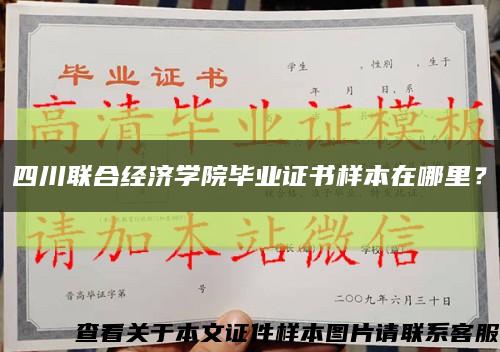 毕业证书
学生 ，性别 ，生于
年 月 日、系
高清毕业证模板
四川联合经济学院毕业证书样本在哪里？
请加本站微信
普高毕证字第 号
二〇〇九年六月三十日
查看关于本文证件样本图片请联系客服